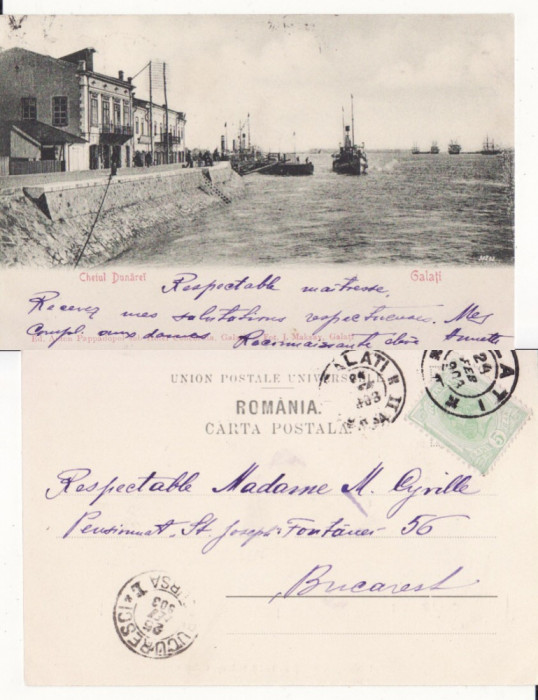 Cheiul Dunărei
Galați
Respectable maîtresse,
Recevez mes salutations respectueuses. Mes
Compl. aux dames Reconnaissante élève
UNION POSTALE UNIVERSELLE
ROMÂNIA.
CARTA POSTALĂ.
GALAȚI
24 FEB 903
5
Respectable Madame M. Cyrille
Pensionnat. St Joseph-Fontânei 56
Bucarest
BUCURESCI
25 FEB 903